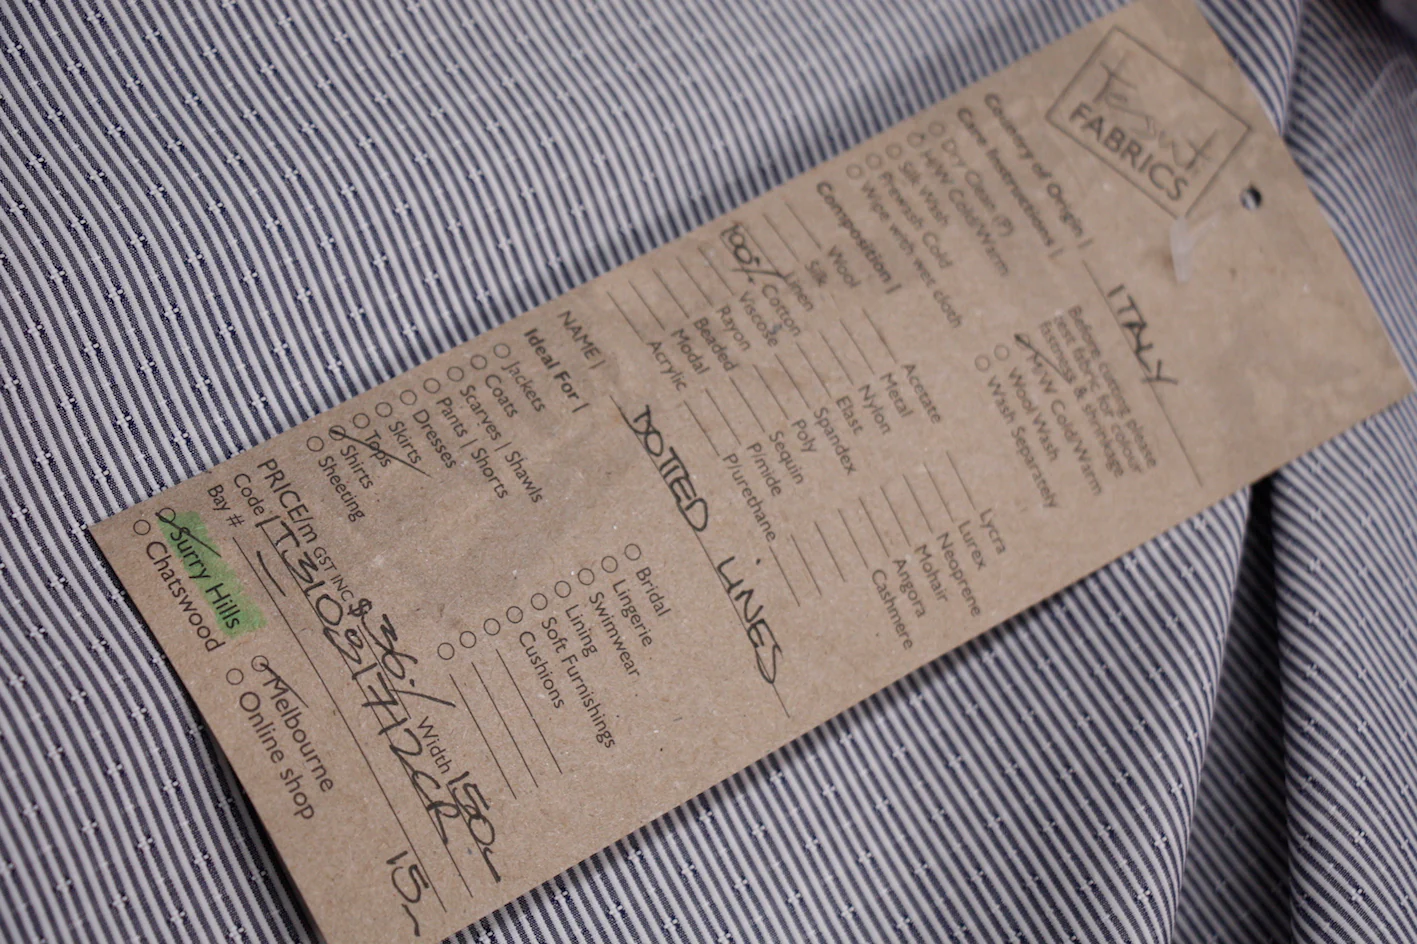 Tessuti
FABRICS
Country of Origin | ITALY
Care Instructions |
Before cutting please
test fabric for colour
fastness & shrinkage
Dry Clean (P)
H/W Cold/Warm
Silk Wash
Prewash Cold
Wipe with wet cloth
M/W Cold/Warm
Wool Wash
Wash Separately
Composition |
Wool
Silk
Linen
100% Cotton
Viscose
Rayon
Beaded
Modal
Acrylic
Acetate
Metal
Nylon
Elast
Spandex
Poly
Sequin
P/mide
P/urethane
Lycra
Lurex
Neoprene
Mohair
Angora
Cashmere
NAME | DOTTED LINES
Ideal For |
Jackets
Coats
Scarves | Shawls
Pants | Shorts
Dresses
Skirts
Tops
Shirts
Sheeting
Bridal
Lingerie
Swimwear
Lining
Soft Furnishings
Cushions
PRICE/m GST INC $36./ Width 150
Code |
Bay #
15
Surry Hills
Chatswood
Melbourne
Online shop